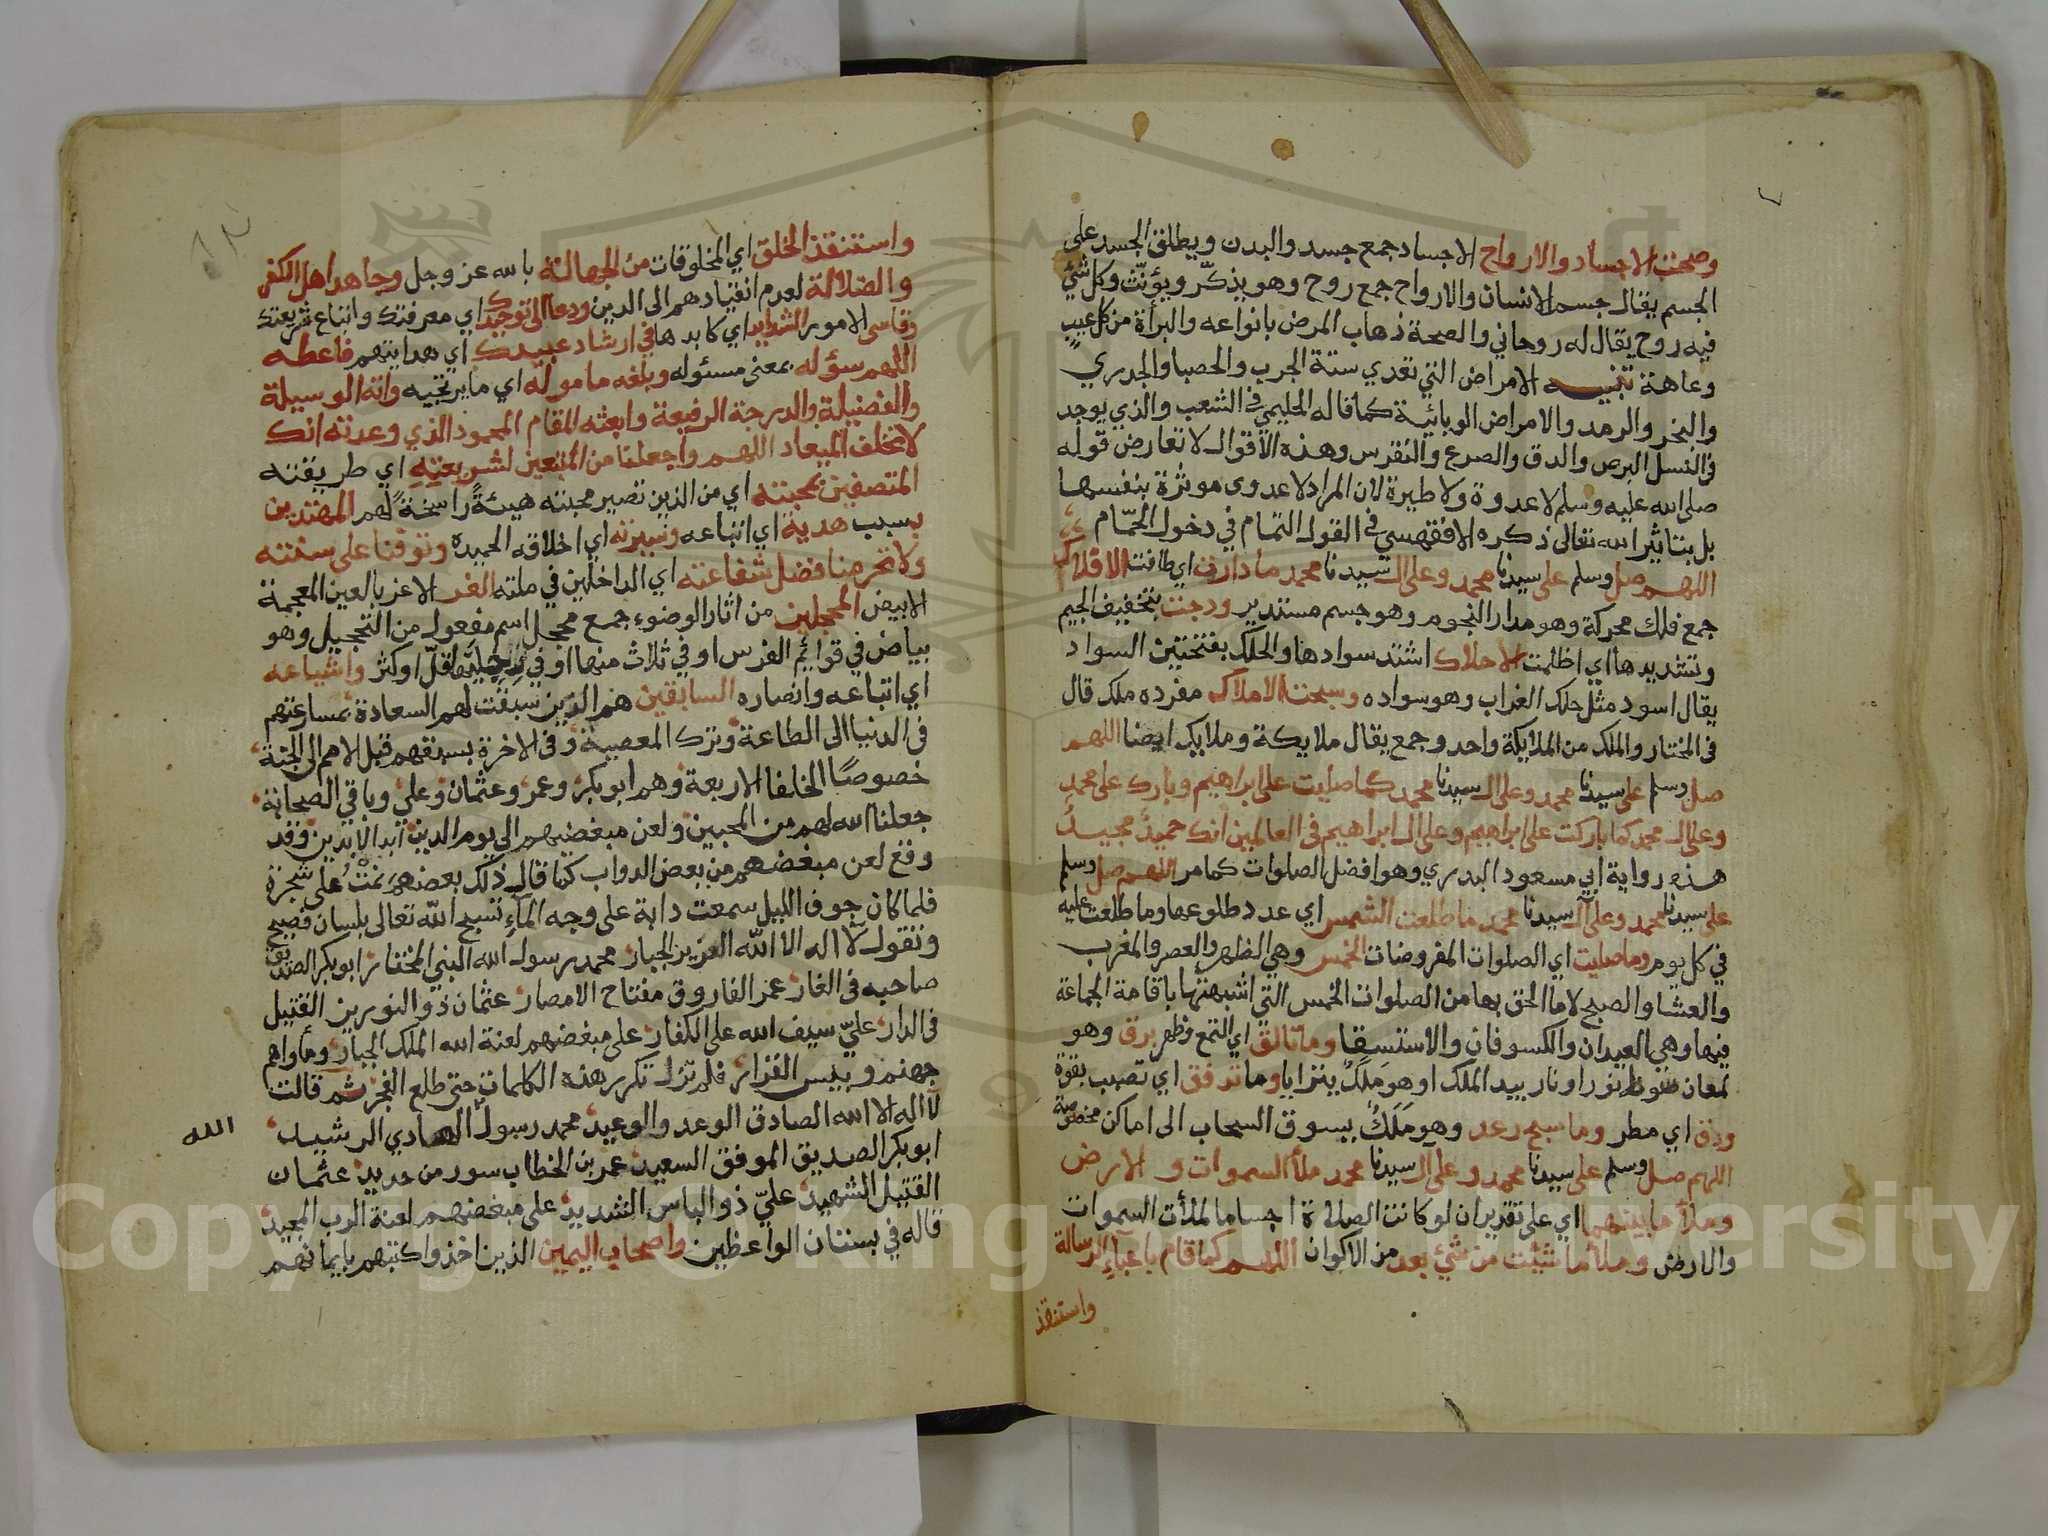 وصحت الاجساد والارواح الاجساد جمع جسد والبدن ويطلق الجسد على
الجسم يقال جسم الانسان والارواح جمع روح وهو يذكّر ويؤنّث وكل شئ
فيه روح يقال له روحاني والصحة ذهاب المرض بانواعه والبرأة من كل عيبٍ
وعاهة تنبيه الامراض التي تعدي ستة الجرب والحصبا والجدري
والبخر والرمد والامراض الوبائية كما قاله الحليمي في الشعب والذي يوجد
في النسل البرص والدق والصرع والنقرس وهذه الاقوال لا تعارض قوله
صلى الله عليه وسلم لا عدوة ولا طيرة لان المراد لا عدوى موثرة بنفسها
بل بتاثير الله تعالى ذكره الافقهسي في القول التمام في دخول الحمّام
اللهم صل وسلم على سيدنا محمد وعلى ال سيدنا محمد ما دارت اي طافت الافلاك
جمع فلك محركة وهو مدار النجوم وهو جسم مستدير ودجت بتخفيف الجيم
وتشديدها اي اظلمت الاحلاك اشتد سوادها والحلك بفتحتين السواد
يقال اسود مثل حلك الغراب وهو سواده وسبحت الاملاك مفرده ملك قال
في المختار والملك من الملائكة واحد وجمع يقال ملايكة وملايك ايضا اللهم
صل وسلم على سيدنا محمد وعلى ال سيدنا محمد كما صليت على ابراهيم وبارك على محمد
وعلى ال محمد كما باركت على ابراهيم وعلى ال ابراهيم في العالمين انك حميدٌ مجيدٌ
هذه رواية ابي مسعود البدري وهو افضل الصلوات كما مر اللهم صل وسلم
على سيدنا محمد وعلى آل سيدنا محمد ما طلعت الشمس اي عدد طلوعها وما طلعت عليه
في كل يوم وما صليت اي الصلوات المفروضات الخمس وهي الظهر والعصر والمغرب
والعشا والصبح لا ما الحق بها من الصلوات الخمس التي اشبهتها باقامة الجماعة
فيها وهي العيدان والكسوفان والاستسقا وما تالق اي التمع وظهر برق وهو
لمعان سوط نور او نار بيد الملك او هو مَلَكٌ يترايا وما تدفق اي تصبب بقوة
ودق اي مطر وما سبح رعد وهو مَلَكٌ يسوق السحاب الى اماكن مخصوصة
اللهم صل وسلم على سيدنا محمد وعلى آل سيدنا محمد ملأ السموات و الارض
وملأ ما بينهما اي على تقدير ان لو كانت الصلاة اجساما لملأت السموات
والارض وملأ ما شئت من شئ بعد من الاكوان اللهم كما قام باعباءِ الرسالة
واستنقذ
واستنقذ الخلق اي المخلوقات من الجهالة بالله عز وجل وجاهد اهل الكفر
والضلالة لعدم انقيادهم الى الدين ودعا الى توحيدك اي معرفتك واتباع شريعتك
وقاسى الامور الشدايد اي كابدها في ارشاد عبيدك اي هدايتهم فاعطه
اللهم سؤله بمعنى مسئوله وبلغه ماموله اي ما يرتجيه واته الوسيلة
والفضيلة والدرجة الرفيعة وابعثه المقام المحمود الذي وعدته انك
لا تخلف الميعاد اللهم واجعلنا من المتبعين لشريعته اي طريقته
المتصفين بمحبته اي من الذين تصير محبته هيئةً راسخةً لهم المهتدين
بسبب هدية اي اتباعه وسيرته اي اخلاقه الحميده وتوفنا على سنته
ولا تحرمنا فضل شفاعته اي الداخلين في ملته الغر الاغر بالعين المعجمة
الابيض المحجلين من اثار الوضوء جمع محجل اسم مفعول من التحجيل وهو
بياض في قوائم الفرس او في ثلاث منها او في رجليه قلّ او كثر واشياعه
اي اتباعه وانصاره السابقين هم الذين سبقت لهم السعادة بمسارعتهم
في الدنيا الى الطاعة وترك المعصية وفي الاخرة بسبقهم قبل الامم الى الجنة
خصوصًا الخلفا الاربعة وهم ابو بكر وعمر وعثمان وعلي وباقي الصحابة
جعلنا الله لهم من المحبين ولعن مبغضيهم الى يوم الدين ابد الابدين وقد
وقع لعن مبغضهم من بعض الدواب كما قال ذلك بعضهم نمتُ على شجرة
فلما كان جوف الليل سمعت دابة على وجه المآءِ تسبح الله تعالى بلسان فصيح
وتقول لا اله الا الله العزيز الجبار محمد رسول الله النبي المختار ابو بكر الصديق
صاحبه في الغار عمر الفاروق مفتاح الامصار عثمان ذو النورين القتيل
في الدار عليّ سيف الله على الكفار على مبغضهم لعنة الله الملك الجبار ومأواهم
جهنم وبيس القرار فلم تزل تكرر هذه الكلمات حتى طلع الفجر ثم قالت
لا اله الا الله الصادق الوعد والوعيد محمد رسول الهادي الرشيد
الله
ابو بكر الصديق الموفق السعيد عمر بن الخطاب سور من حديد عثمان
القتيل الشهيد عليّ ذو الباس الشديد على مبغضهم لعنة الرب المجيد
قاله في بستنان الواعظين واصحاب اليمين الذين اخذوا كتبهم بايمانهم